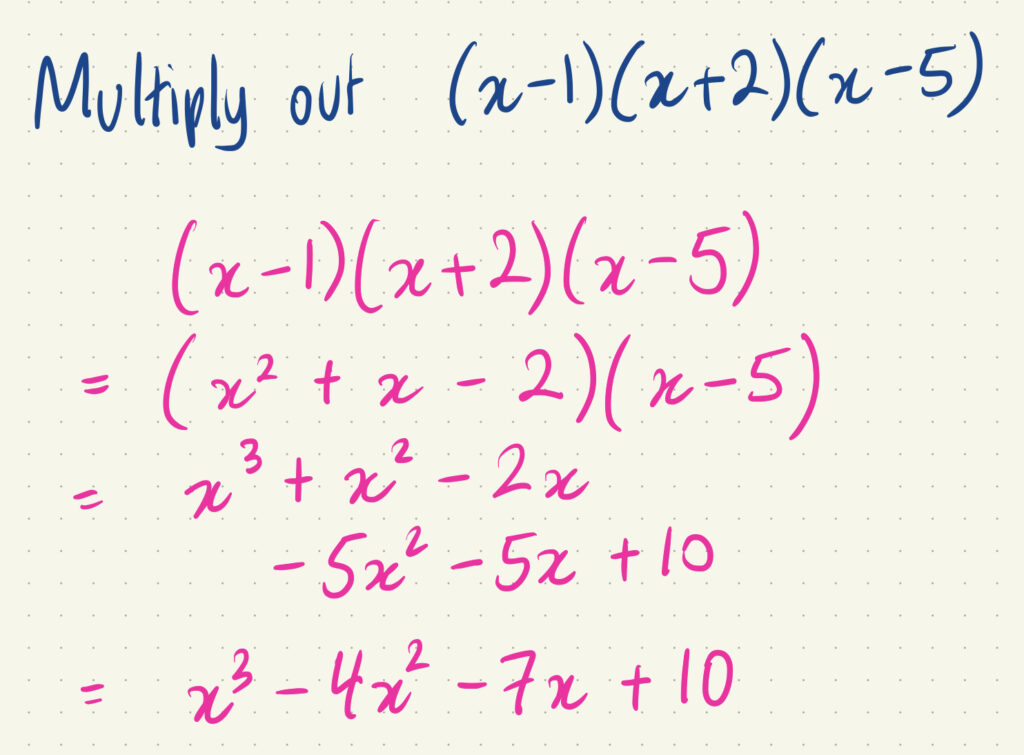 Multiply out (x-1)(x+2)(x-5)
(x-1)(x+2)(x-5)
= (x² + x - 2)(x-5)
= x³ + x² - 2x
- 5x² - 5x + 10
= x³ - 4x² - 7x + 10